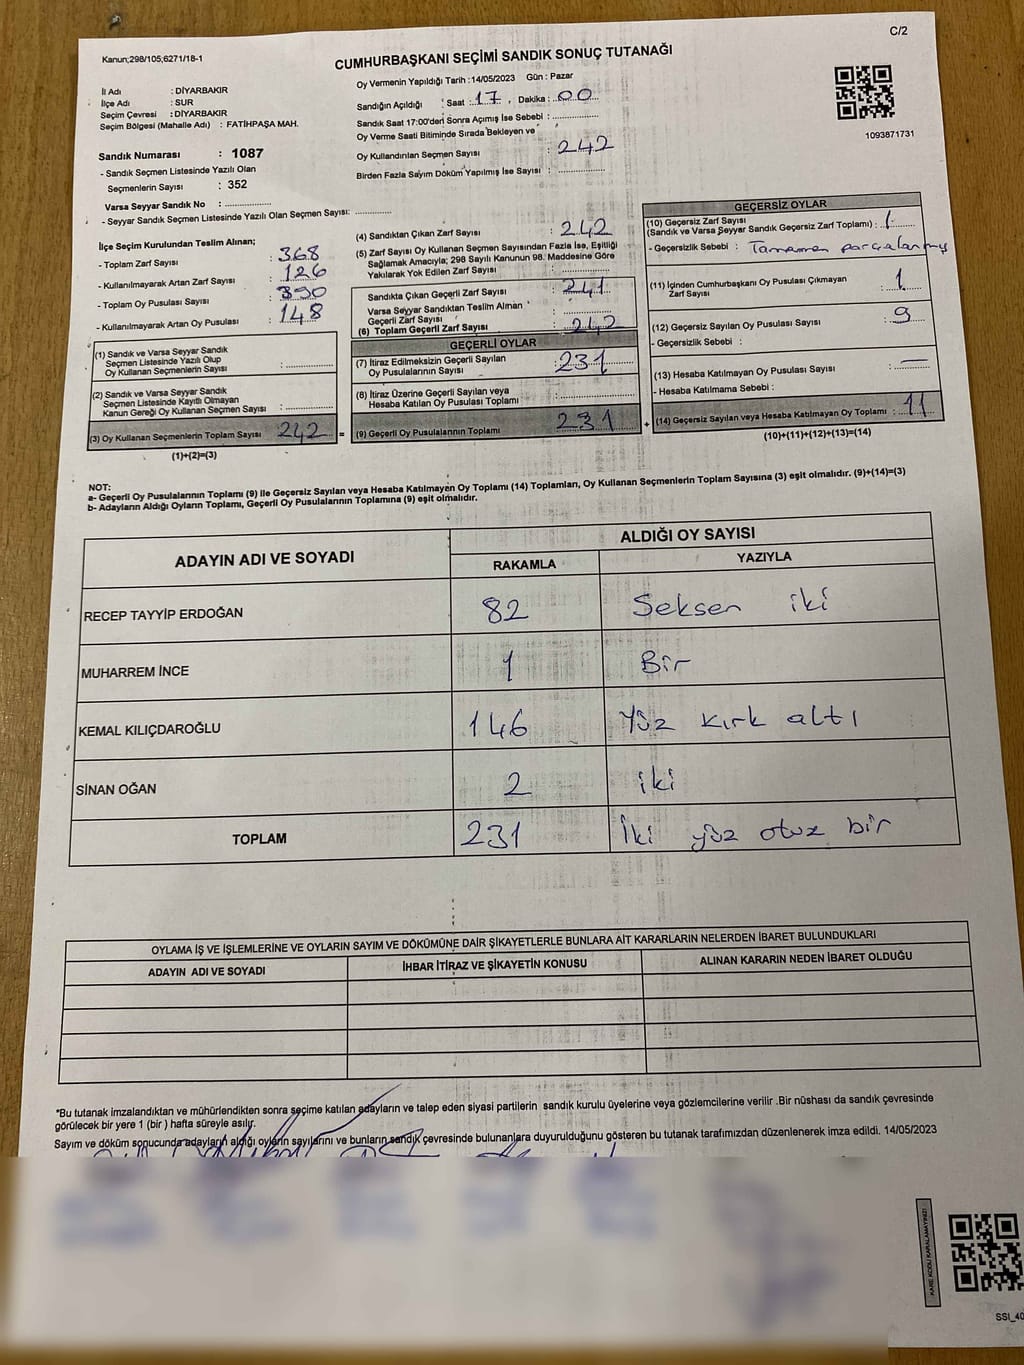 C/2
Kanun;298/105,6271/18-1
CUMHURBAŞKANI SEÇİMİ SANDIK SONUÇ TUTANAĞI
İl Adı : DİYARBAKIR
İlçe Adı : SUR
Seçim Çevresi : DİYARBAKIR
Seçim Bölgesi (Mahalle Adı) : FATİHPAŞA MAH.
Sandık Numarası : 1087
- Sandık Seçmen Listesinde Yazılı Olan
Seçmenlerin Sayısı : 352
Varsa Seyyar Sandık No : ..............
- Seyyar Sandık Seçmen Listesinde Yazılı Olan Seçmen Sayısı: ..............
Oy Vermenin Yapıldığı Tarih :14/05/2023 Gün : Pazar
Sandığın Açıldığı : Saat : 17 , Dakika : 00
Sandık Saat 17:00'den Sonra Açımış İse Sebebi : ..............
Oy Verme Saati Bitiminde Sırada Bekleyen ve
Oy Kullandırılan Seçmen Sayısı : 242
Birden Fazla Sayım Döküm Yapılmış İse Sayısı : ..............
1093871731
İlçe Seçim Kurulundan Teslim Alınan;
- Toplam Zarf Sayısı : 368
- Kullanılmayarak Artan Zarf Sayısı : 126
- Toplam Oy Pusulası Sayısı : 390
- Kullanılmayarak Artan Oy Pusulası : 148
(1) Sandık ve Varsa Seyyar Sandık
Seçmen Listesinde Yazılı Olup
Oy Kullanan Seçmenlerin Sayısı : ..............
(2) Sandık ve Varsa Seyyar Sandık
Seçmen Listesinde Kayıtlı Olmayan
Kanun Gereği Oy Kullanan Seçmen Sayısı : ..............
(3) Oy Kullanan Seçmenlerin Toplam Sayısı 242 =
(1)+(2)=(3)
(4) Sandıktan Çıkan Zarf Sayısı : 242
(5) Zarf Sayısı Oy Kullanan Seçmen Sayısından Fazla İse, Eşitliği
Sağlamak Amacıyla; 298 Sayılı Kanunun 98. Maddesine Göre
Yakılarak Yok Edilen Zarf Sayısı : ..............
Sandıkta Çıkan Geçerli Zarf Sayısı : 241
Varsa Seyyar Sandıktan Teslim Alınan :
Geçerli Zarf Sayısı : ..............
(6) Toplam Geçerli Zarf Sayısı : 242
GEÇERLİ OYLAR
(7) İtiraz Edilmeksizin Geçerli Sayılan
Oy Pusulalarının Sayısı : 231
(8) İtiraz Üzerine Geçerli Sayılan veya
Hesaba Katılan Oy Pusulası Toplamı : ..............
(9) Geçerli Oy Pusulalarının Toplamı : 231 +
GEÇERSİZ OYLAR
(10) Geçersiz Zarf Sayısı
(Sandık ve Varsa Seyyar Sandık Geçersiz Zarf Toplamı) : 1
- Geçersizlik Sebebi : Tamamen parçalanmış
(11) İçinden Cumhurbaşkanı Oy Pusulası Çıkmayan
Zarf Sayısı : 1
(12) Geçersiz Sayılan Oy Pusulası Sayısı : 9
- Geçersizlik Sebebi :
(13) Hesaba Katılmayan Oy Pusulası Sayısı : —
- Hesaba Katılmama Sebebi :
(14) Geçersiz Sayılan veya Hesaba Katılmayan Oy Toplamı : 11
(10)+(11)+(12)+(13)=(14)
NOT:
a- Geçerli Oy Pusulalarının Toplamı (9) ile Geçersiz Sayılan veya Hesaba Katılmayan Oy Toplamı (14) Toplamları, Oy Kullanan Seçmenlerin Toplam Sayısına (3) eşit olmalıdır. (9)+(14)=(3)
b- Adayların Aldığı Oyların Toplamı, Geçerli Oy Pusulalarının Toplamına (9) eşit olmalıdır.
ADAYIN ADI VE SOYADI ALDIĞI OY SAYISI
RAKAMLA YAZIYLA
RECEP TAYYİP ERDOĞAN 82 Seksen iki
MUHARREM İNCE 1 Bir
KEMAL KILIÇDAROĞLU 146 Yüz kırk altı
SİNAN OĞAN 2 iki
TOPLAM 231 İki yüz otuz bir
OYLAMA İŞ VE İŞLEMLERİNE VE OYLARIN SAYIM VE DÖKÜMÜNE DAİR ŞİKAYETLERLE BUNLARA AİT KARARLARIN NELERDEN İBARET BULUNDUKLARI
ADAYIN ADI VE SOYADI İHBAR İTİRAZ VE ŞİKAYETİN KONUSU ALINAN KARARIN NEDEN İBARET OLDUĞU
*Bu tutanak imzalandıktan ve mühürlendikten sonra seçime katılan adayların ve talep eden siyasi partilerin sandık kurulu üyelerine veya gözlemcilerine verilir .Bir nüshası da sandık çevresinde
görülecek bir yere 1 (bir ) hafta süreyle asılır.
Sayım ve döküm sonucunda adayların aldığı oyların sayılarını ve bunların sandık çevresinde bulunanlara duyurulduğunu gösteren bu tutanak tarafımızdan düzenlenerek imza edildi. 14/05/2023
KARE KODU KARALAMAYINIZ!
SSI_40